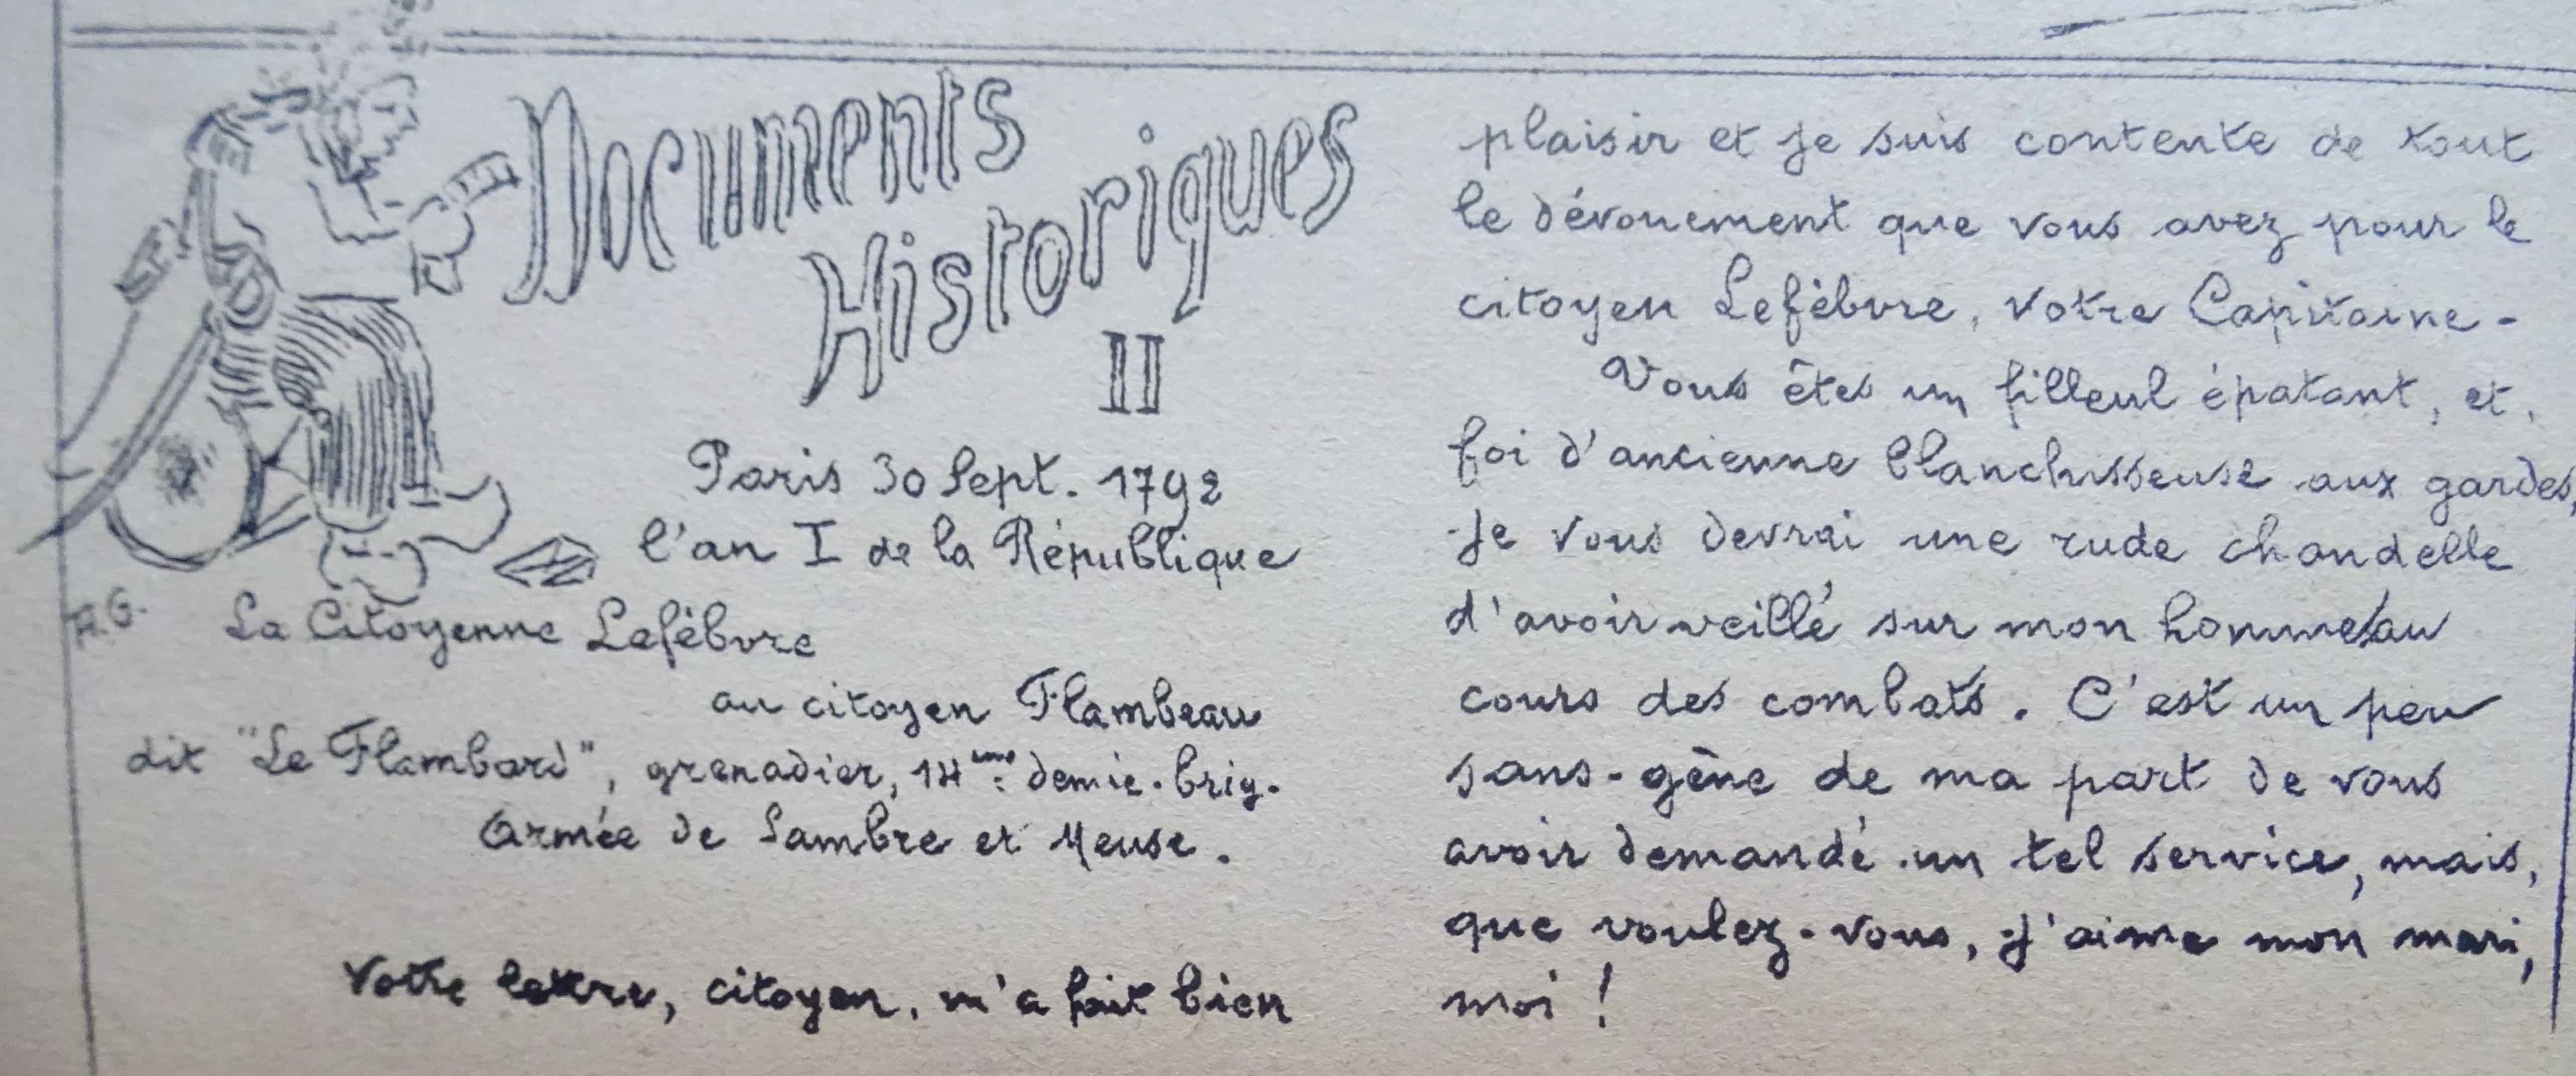 Documents
Historiques
II
Paris 30 Sept. 1792
l'an I de la République
A.G.
La Citoyenne Lefèbvre
au citoyen Flambeau
dit "Le Flambard", grenadier, 14ème demie-brig.
Armée de Sambre et Meuse.
Votre lettre, citoyen, m'a fait bien
plaisir et je suis contente de tout
le dévouement que vous avez pour le
citoyen Lefèbvre, votre Capitaine-
Vous êtes un filleul épatant, et,
foi d'ancienne blanchisseuse aux gardes,
je vous devrai une rude chandelle
d'avoir veillé sur mon homme/au
cours des combats. C'est un peu
sans-gêne de ma part de vous
avoir demandé un tel service, mais,
que voulez-vous, j'aime mon mari,
moi !